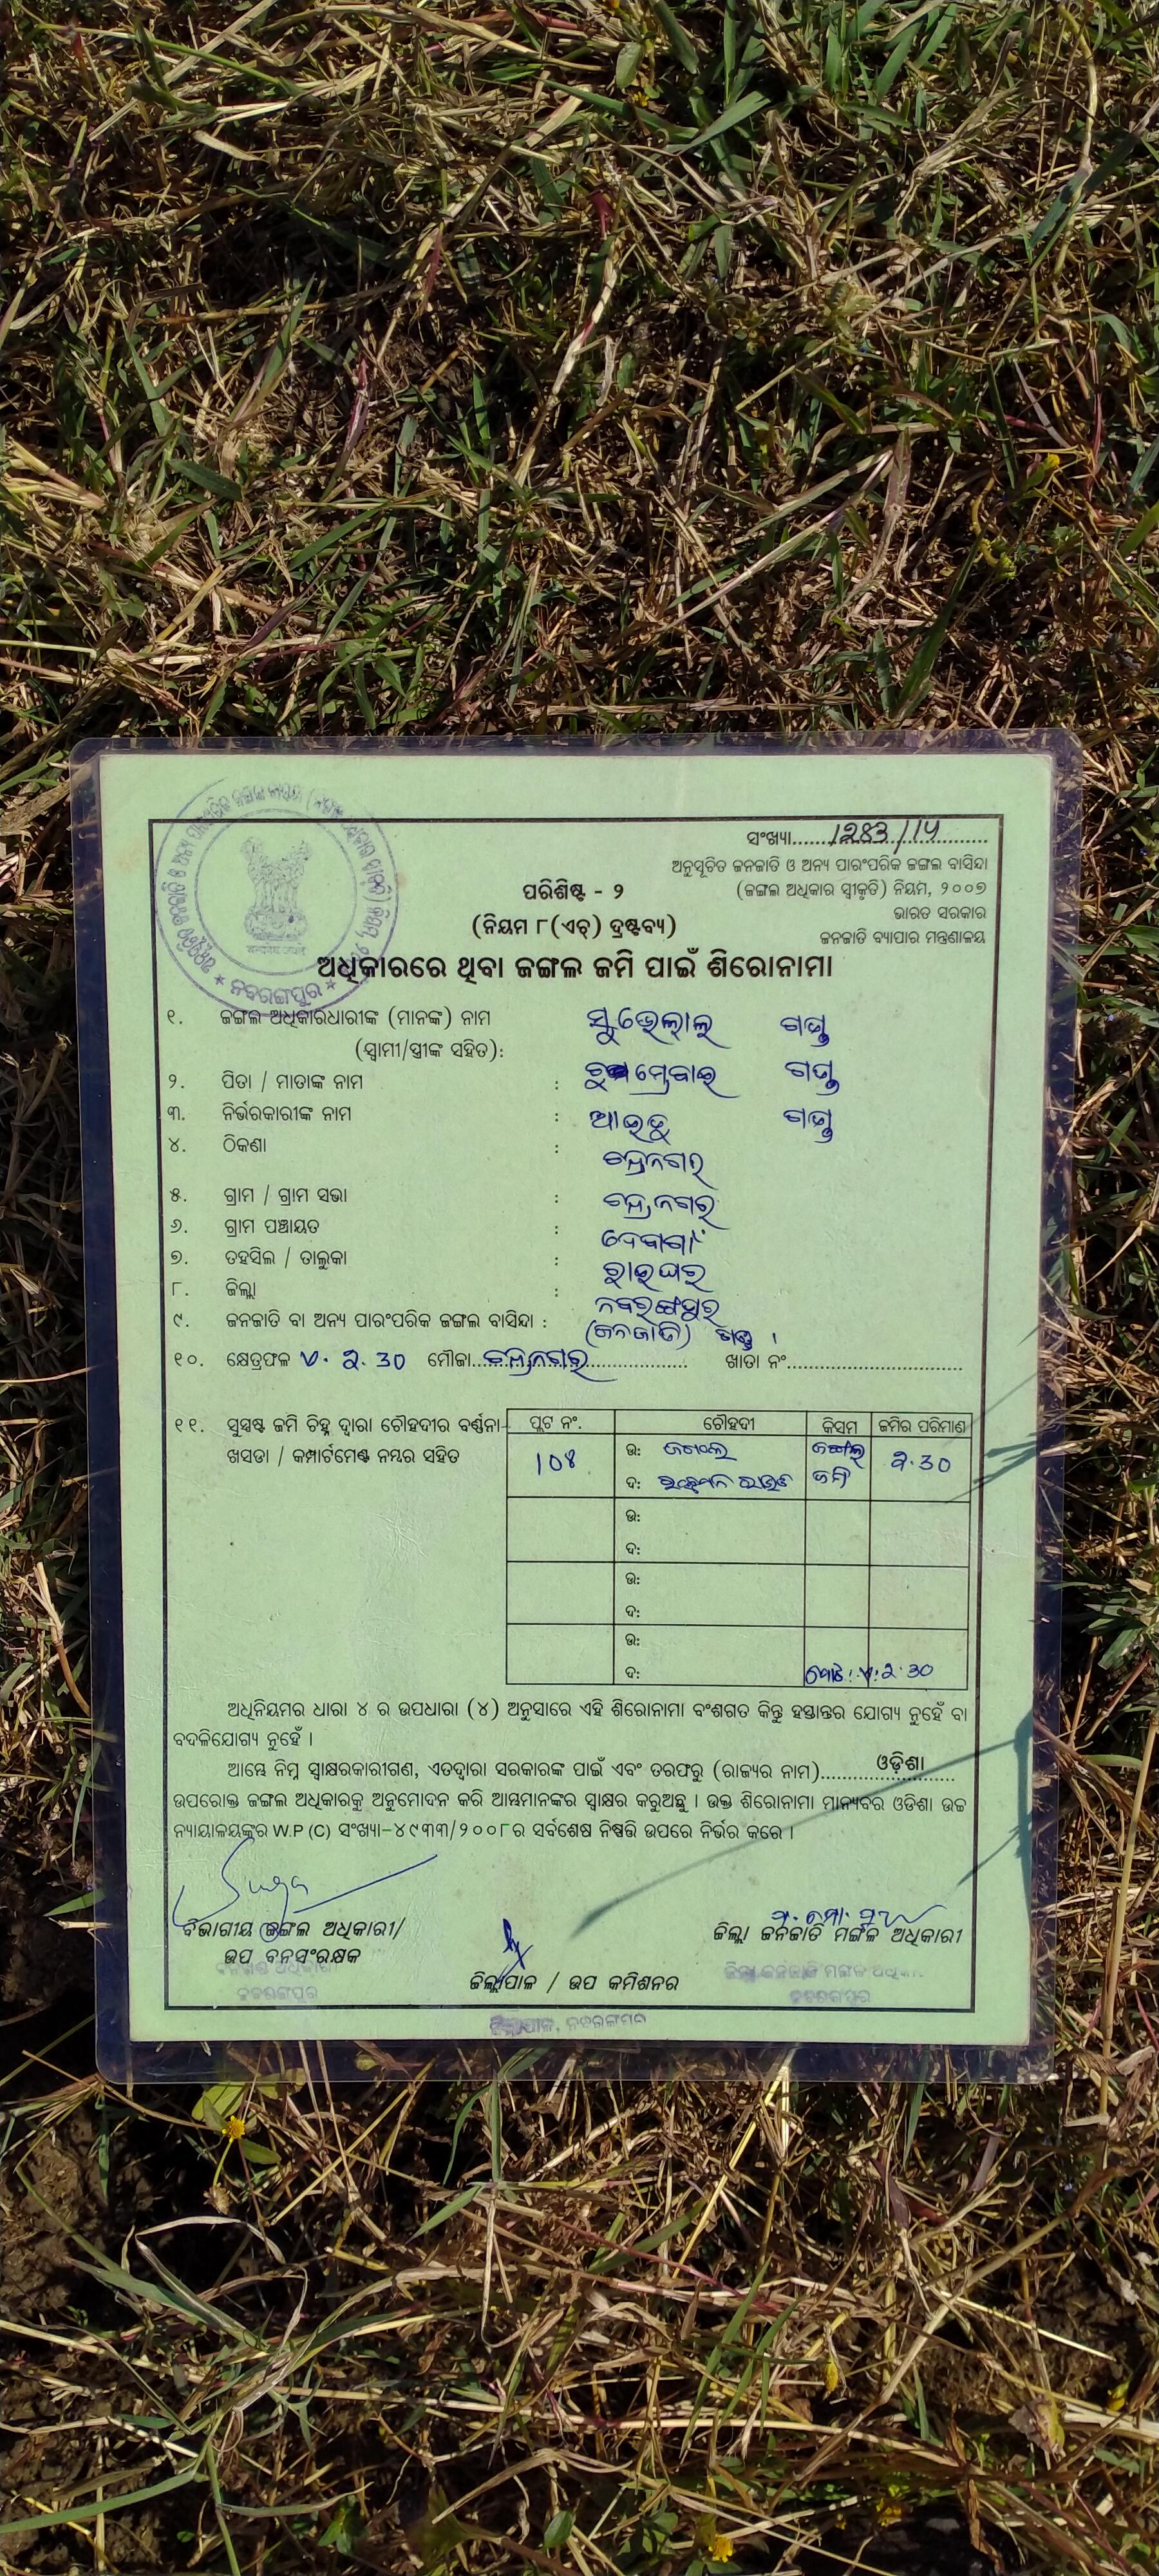 ସଂଖ୍ୟା....1283/14....
ଅନୁସୂଚିତ ଜନଜାତି ଓ ଅନ୍ୟ ପାରଂପରିକ ଜଙ୍ଗଲ ବାସିନ୍ଦା
(ଜଙ୍ଗଲ ଅଧିକାର ସ୍ୱୀକୃତି) ନିୟମ, ୨୦୦୭
ଭାରତ ସରକାର
ଜନଜାତି ବ୍ୟାପାର ମନ୍ତ୍ରଣାଳୟ
ପରିଶିଷ୍ଟ - ୨
(ନିୟମ ୮(ଏଚ୍) ଦ୍ରଷ୍ଟବ୍ୟ)
ଅଧିକାରରେ ଥିବା ଜଙ୍ଗଲ ଜମି ପାଇଁ ଶିରୋନାମା
★ ନବରଙ୍ଗପୁର ★
୧. ଜଙ୍ଗଲ ଅଧିକାରଧାରୀଙ୍କ (ମାନଙ୍କ) ନାମ
(ସ୍ୱାମୀ/ସ୍ତ୍ରୀଙ୍କ ସହିତ):
୨. ପିତା / ମାତାଙ୍କ ନାମ :
୩. ନିର୍ଭରକାରୀଙ୍କ ନାମ : ଆଇତୁ
୪. ଠିକଣା :
୫. ଗ୍ରାମ / ଗ୍ରାମ ସଭା :
୬. ଗ୍ରାମ ପଞ୍ଚାୟତ : ଦେବଗାଁ
୭. ତହସିଲ / ତାଲୁକା : ରାଇଘର
୮. ଜିଲ୍ଲା : ନବରଙ୍ଗପୁର
୯. ଜନଜାତି ବା ଅନ୍ୟ ପାରଂପରିକ ଜଙ୍ଗଲ ବାସିନ୍ଦା : (ଜନଜାତି)
୧୦. କ୍ଷେତ୍ରଫଳ 2.30 ମୌଜା.... ଖାତା ନଂ....
୧୧. ସୁସ୍ପଷ୍ଟ ଜମି ଚିହ୍ନ ଦ୍ୱାରା ଚୌହଦୀର ବର୍ଣ୍ଣନା-
ଖସଡା / କମ୍ପାର୍ଟମେଣ୍ଟ ନମ୍ବର ସହିତ
ପ୍ଲଟ ନଂ. ଚୌହଦୀ କିସମ ଜମିର ପରିମାଣ
ଉ: ଜଙ୍ଗଲ 2.30
ଦ: ଜମି
ଉ:
ଦ:
ଉ:
ଦ:
ଉ:
ଦ: ମୋଟ: 2.30
ଅଧିନିୟମର ଧାରା ୪ ର ଉପଧାରା (୪) ଅନୁସାରେ ଏହି ଶିରୋନାମା ବଂଶଗତ କିନ୍ତୁ ହସ୍ତାନ୍ତର ଯୋଗ୍ୟ ନୁହେଁ ବା
ବଦଳିଯୋଗ୍ୟ ନୁହେଁ ।
ଆମ୍ଭେ ନିମ୍ନ ସ୍ୱାକ୍ଷରକାରୀଗଣ, ଏତଦ୍ୱାରା ସରକାରଙ୍କ ପାଇଁ ଏବଂ ତରଫରୁ (ରାଜ୍ୟର ନାମ)....ଓଡ଼ିଶା....
ଉପରୋକ୍ତ ଜଙ୍ଗଲ ଅଧିକାରକୁ ଅନୁମୋଦନ କରି ଆମ୍ଭମାନଙ୍କର ସ୍ୱାକ୍ଷର କରୁଅଛୁ । ଉକ୍ତ ଶିରୋନାମା ମାନ୍ୟବର ଓଡିଶା ଉଚ୍ଚ
ନ୍ୟାୟାଳୟଙ୍କର W.P (C) ସଂଖ୍ୟା-୪୯୩୩/୨୦୦୮ର ସର୍ବଶେଷ ନିଷ୍ପତ୍ତି ଉପରେ ନିର୍ଭର କରେ ।
ବିଭାଗୀୟ ଜଙ୍ଗଲ ଅଧିକାରୀ/
ଉପ ବନସଂରକ୍ଷକ
ଜିଲ୍ଲା ଜନଜାତି ମଙ୍ଗଳ ଅଧିକାରୀ
ଜିଲ୍ଲାପାଳ / ଉପ କମିଶନର
ନବରଙ୍ଗପୁର
ଜିଲ୍ଲା ଜନଜାତି ମଙ୍ଗଳ
ନବରଙ୍ଗପୁର
ଜିଲ୍ଲାପାଳ, ନବରଙ୍ଗପୁର